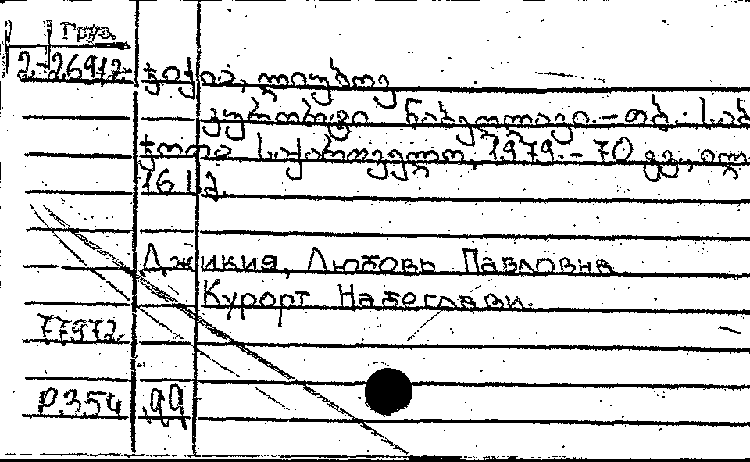 Груз.
2-26912 ჯიქია, ლიუბოვ
კურორტი ნაბეღლავი. – თბ.: საბ
ჭოთა საქართველო, 1979. – 70 გვ., ილ
16 1 გ.
Джикия, Любовь Павловна
Курорт Набеглави.
77972
р.354 ,99